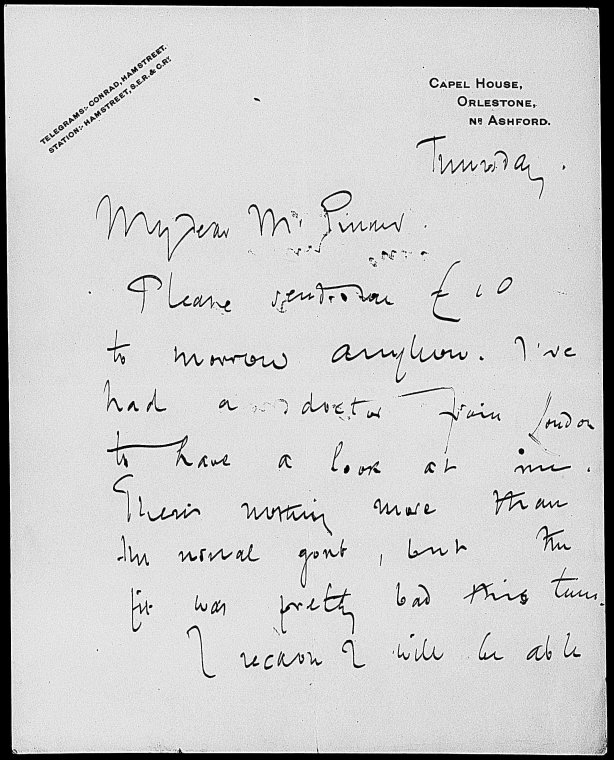 TELEGRAMS:- CONRAD, HAMSTREET.
STATION:- HAMSTREET, S.E.R. & C.RY.
CAPEL HOUSE,
ORLESTONE,
NR ASHFORD.
Thursday.
My dear Mr Pinker.
Please send me £10
to morrow anyhow. I've
had a doctor from London
to have a look at me.
There's nothing more than
the usual gout, but the
fit was pretty bad this time.
I reckon I will be able